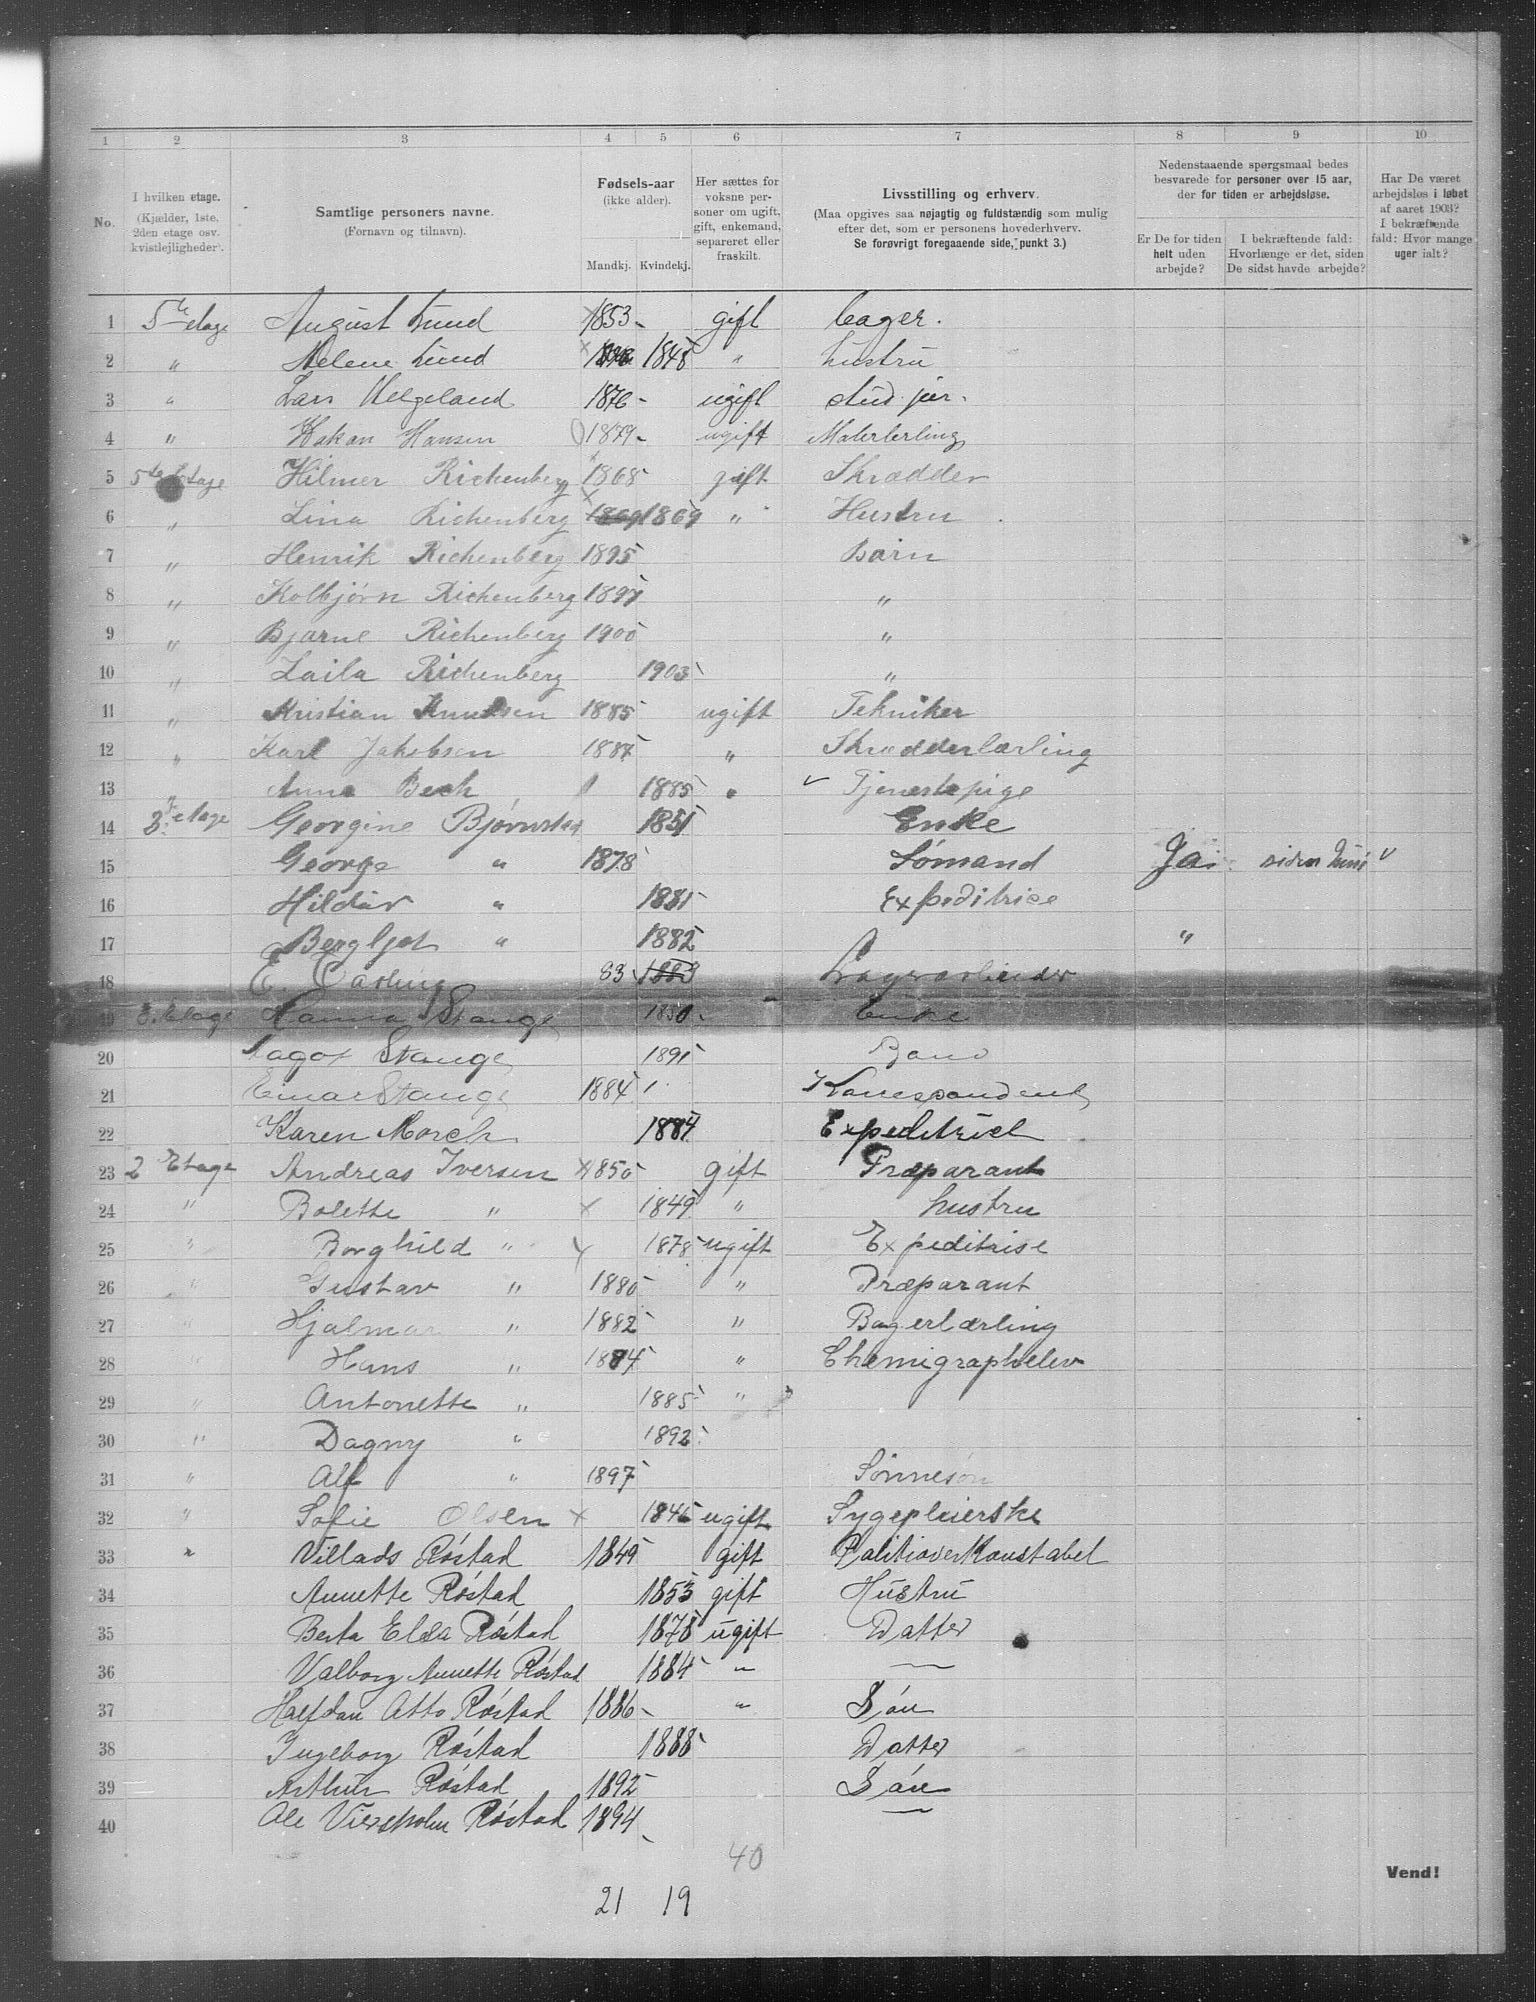 1 2 3 4 5 6 7 8 9 10
No.
I hvilken etage.
(Kjælder, 1ste,
2den etage osv.
kvistlejligheder).
Samtlige personers navne.
(Fornavn og tilnavn).
Fødsels-aar
(ikke alder).
Mandkj. Kvindekj.
Her sættes for
voksne per-
soner om ugift,
gift, enkemand,
separeret eller
fraskilt.
Livsstilling og erhverv.
(Maa opgives saa nøjagtig og fuldstændig som mulig
efter det, som er personens hovederhverv.
Se forøvrigt foregaaende side, punkt 3.)
Nedenstaaende spørgsmaal bedes
besvarede for personer over 15 aar,
der for tiden er arbejdsløse.
Er De for tiden
helt uden
arbejde?
I bekræftende fald:
Hvorlænge er det, siden
De sidst havde arbejde?
Har De været
arbejdsløs i løbet
af aaret 1903?
I bekræftende
fald: Hvor mange
uger ialt?
1 5te etage August Lund 1853 gift Bager.
2 " Helene Lund 1848 " hustru
3 " Lars Helgeland 1876 ugift stud. jur.
4 " Hakan Hansen 1879 ugift Malerlerling
5 5te Etage Hilmer Richenberg 1868 gift Skrædder
6 " Lina Richenberg 1869 1869 " Hustru
7 " Henrik Richenberg 1895 Barn
8 " Kolbjørn Richenberg 1897 "
9 " Bjarne Richenberg 1900 "
10 " Laila Richenberg 1903 "
11 " Kristian Knudsen 1885 ugift Tekniker
12 " Karl Jakobsen 1887 " Skrædderlærling
13 " Anna Bech 1885 " Tjenestepige
14 3 etage Georgine Bjørnstad 1851 Enke
15 George " 1878 Sømand Ja. siden Juni
16 Hildur " 1881 Expeditrice
17 Bergljot " 1882 "
18 E. Carling 83 1883 Lagerarbeider
19 3. Etage Hanna Stange 1850 Enke
20 Stange 1891 Barn
21 Einar Stange 1884 Korrespondent
22 Karen Morch 1884 Expeditrice
23 2 Etage Andreas Iversen 1850 gift Præparant
24 " Bolette " 1849 " hustru
25 " Borghild " 1878 ugift Expeditrise
26 " Gustav " 1880 " Præparant
27 " Hjalmar " 1882 " Bagerlærling
28 " Hans " 1884 " Chemigraphelev
29 " Antonette " 1885 "
30 " Dagny " 1892
31 " Alf " 1897 Sønnesøn
32 " Sofie Olsen 1846 ugift Sygepleierske
33 " Villads Røstad 1849 gift Politioverkonstabel
34 Annette Røstad 1853 gift Hustru
35 Berta Elda Røstad 1878 ugift Datter
36 Valborg Annette Røstad 1884 " —
37 Halfdan Otto Røstad 1886 " Søn
38 Ingeborg Røstad 1888 Datter
39 Arthur Røstad 1892 Søn
40 Ole Røstad 1894 —
40
21 19
Vend!